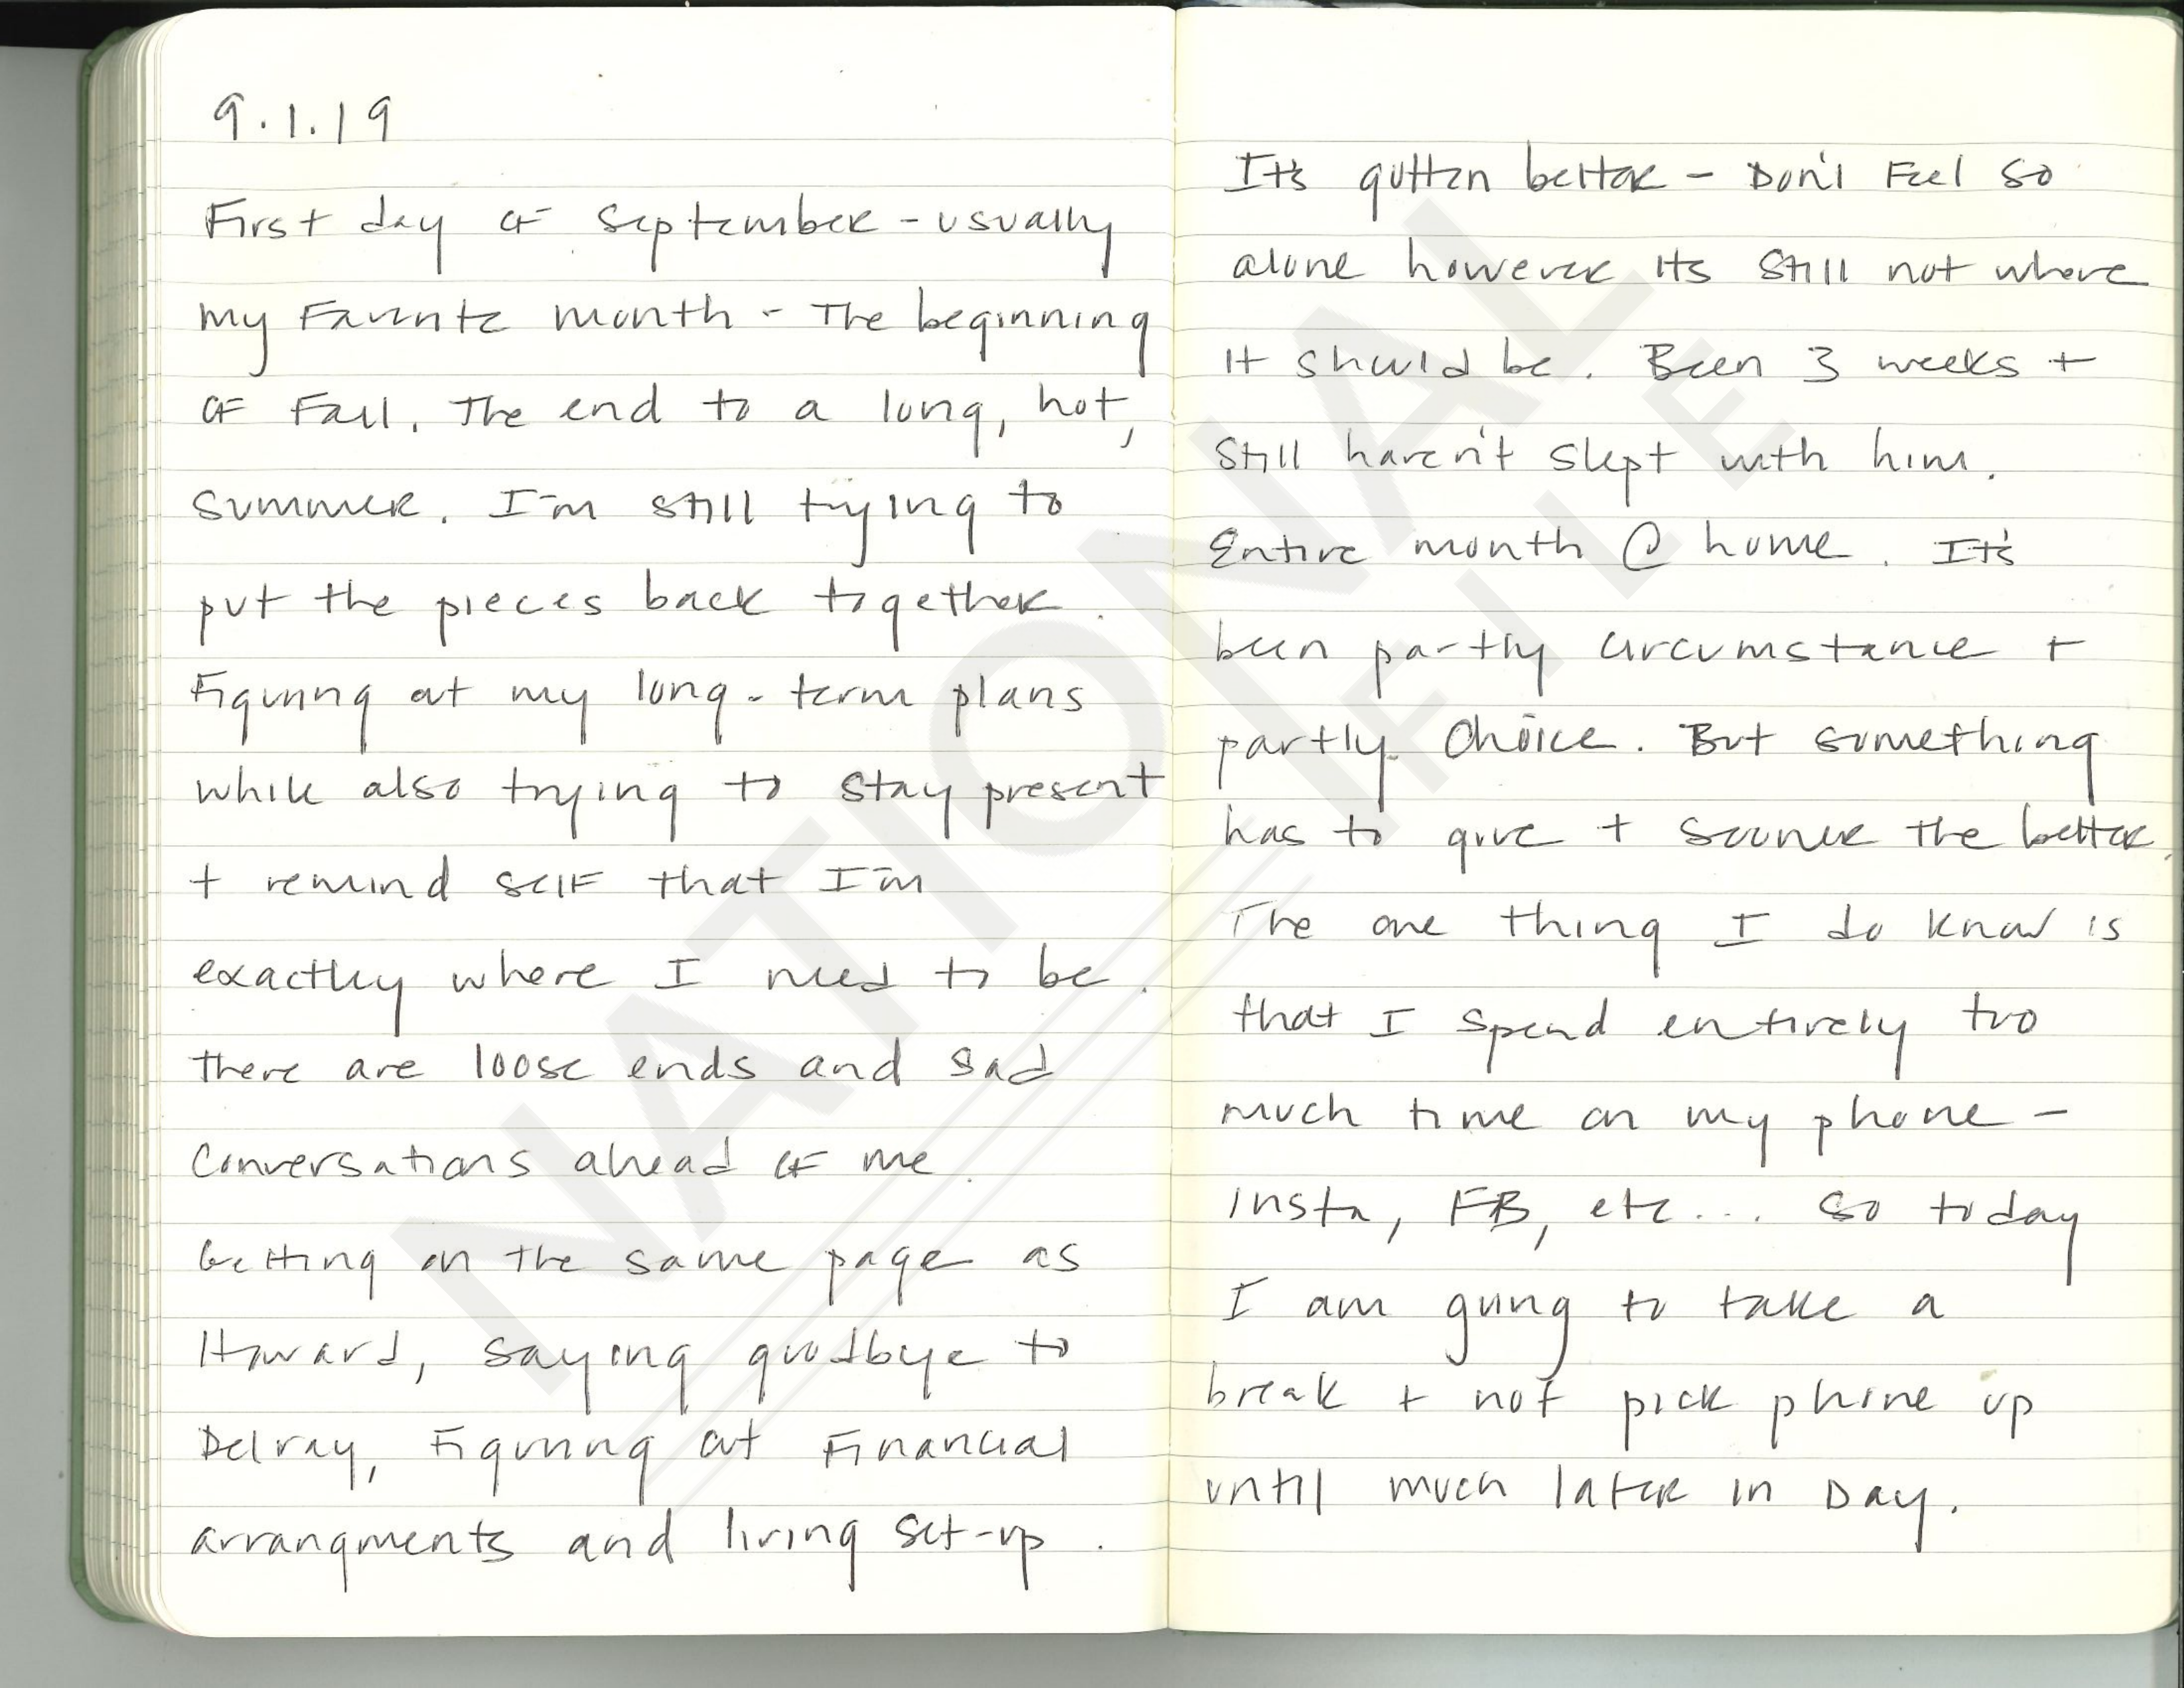 9.1.19
First day of September - usually
my Favorite month - The beginning
of Fall. The end to a long, hot,
summer. I'm still trying to
put the pieces back together.
Figuring out my long-term plans
while also trying to stay present
+ remind self that I'm
exactly where I need to be.
There are loose ends and sad
conversations ahead of me.
Getting on the same page as
Howard, saying goodbye to
Delray, Figuring out Financial
arrangments and living set-up.
It's gotten better - Don't Feel so
alone however its still not where
it should be. Been 3 weeks +
still haven't slept with him.
Entire month @ home. It's
been partly circumstance +
partly choice. But something
has to give + sooner the better.
The one thing I do know is
that I spend entirely too
much time on my phone -
Insta, FB, etc... So today
I am going to take a
break + not pick phone up
until much later in Day.
NATIONAL
FILE